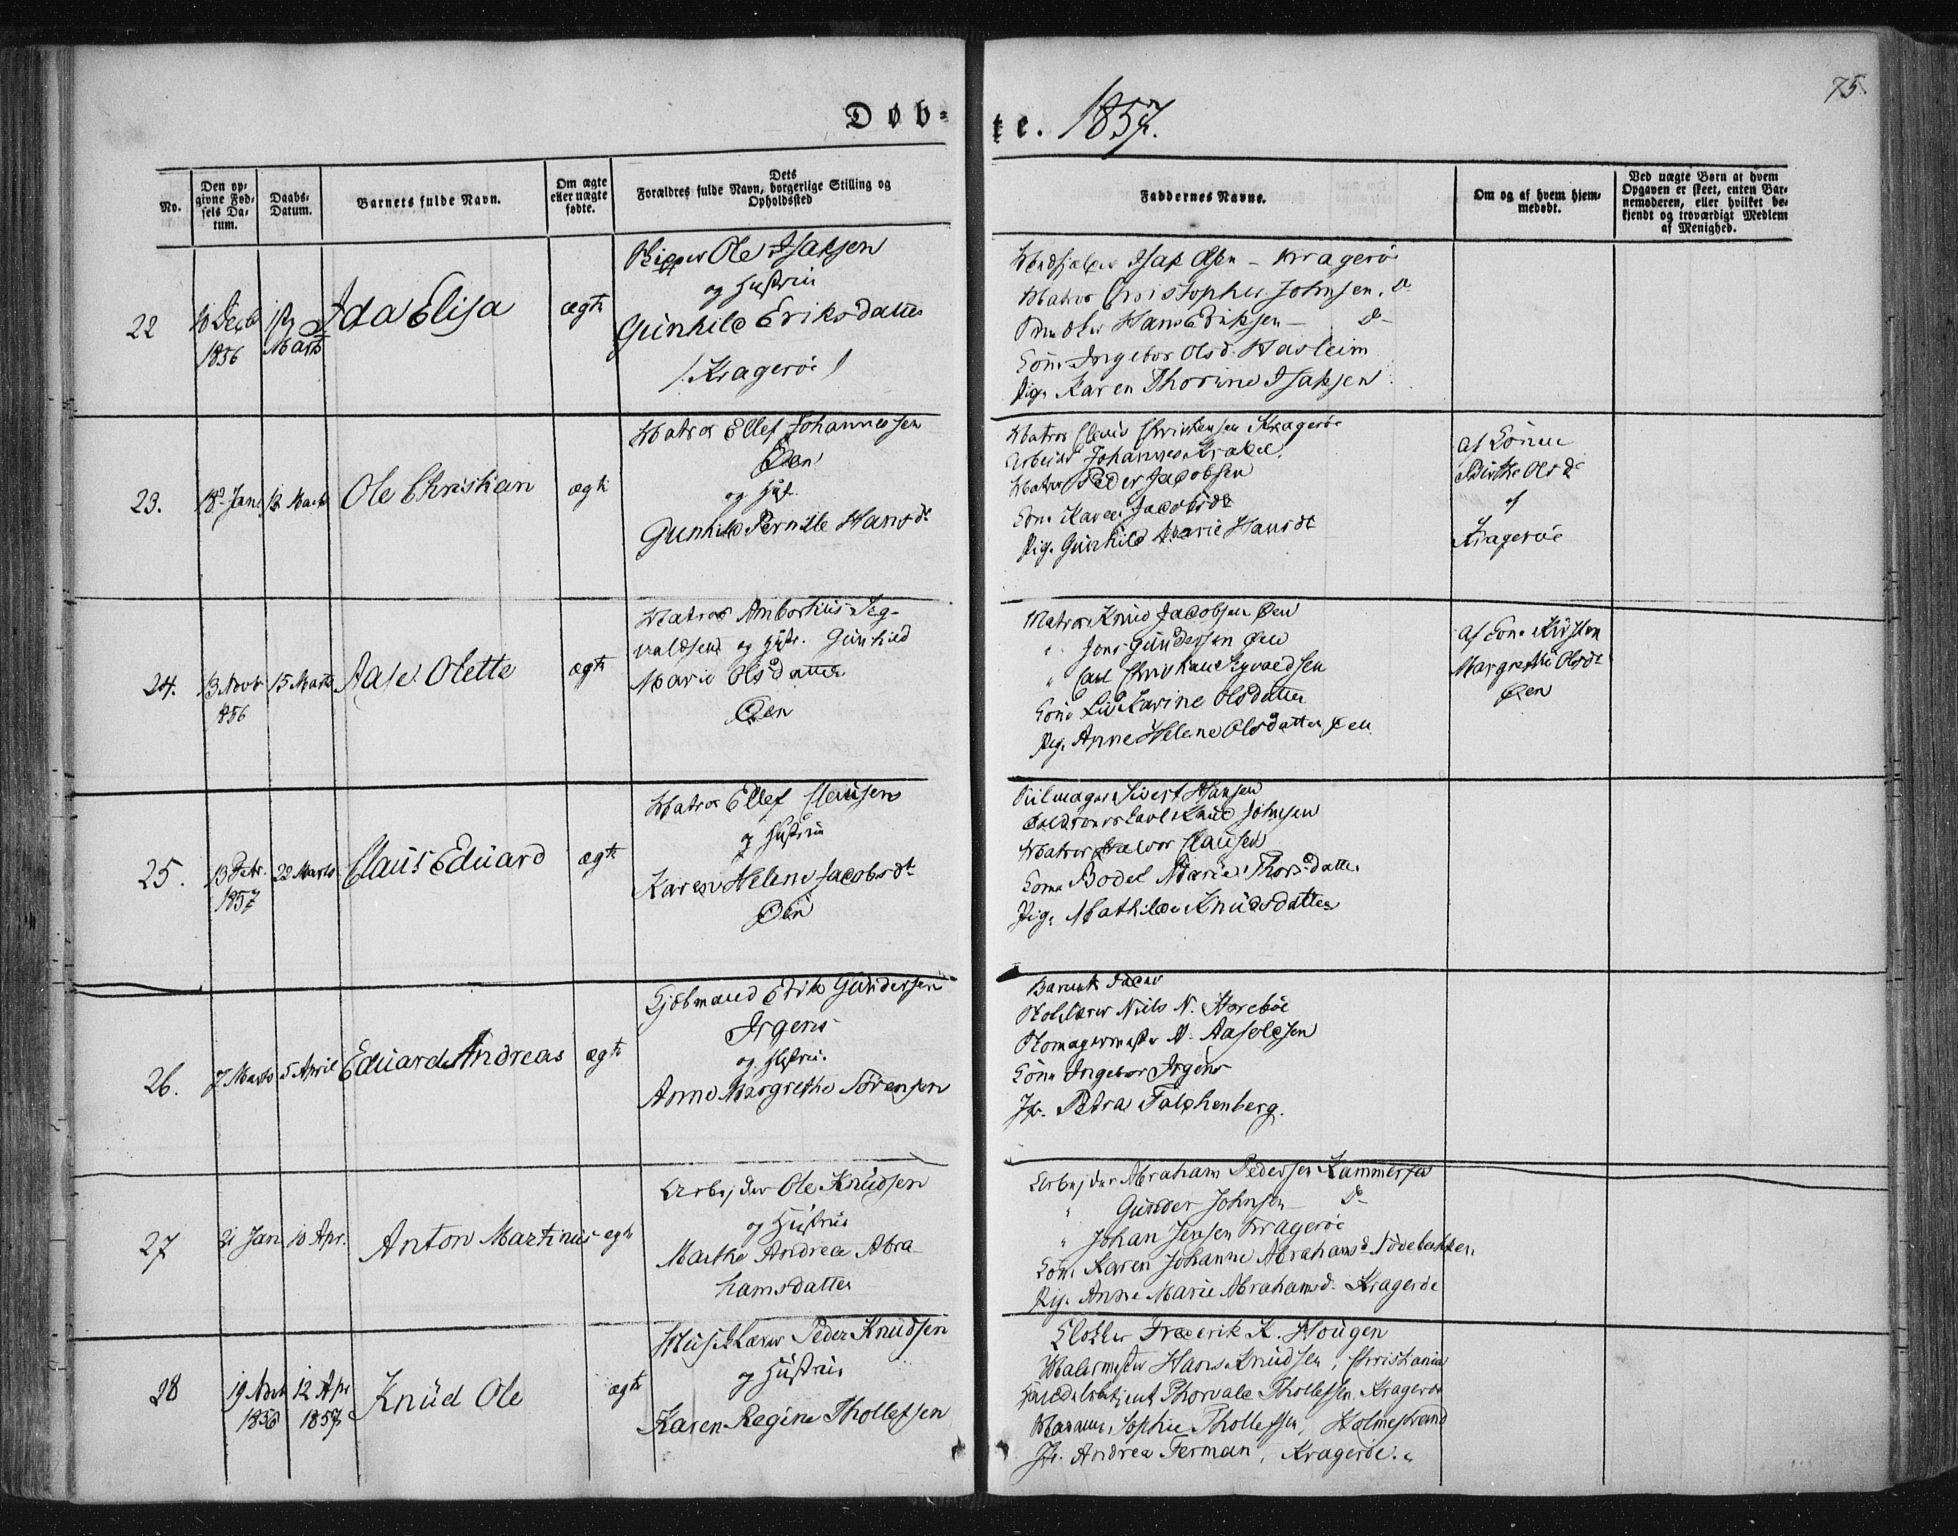 75.
Døb=
te. 1857.
No.
Den op=
givne Fød=
sels Da=
tum.
Daabs=
Datum.
Barnets fulde Navn.
Om ægte
eller uægte
fødte.
Dets
Forældres fulde Navn, borgerlige Stilling og
Opholdssted
Faddernes Navne.
Om og af hvem hjem=
medøbt.
Ved uægte Børn at hvem
Opgaven er skeet, enten Bar=
nemoderen, eller hvilket be=
kjendt og troværdigt Medlem
af Menighed.
22
10 Decb
1856
Marts
Ida Elisa
ægte
Ole Isaksen
og Hustrue
Gunhild Eriksdatter
/Kragerøe/
Isak Olsen - Kragerøe
Matros Christopher Johnsen. do
Hans Eriksen - do
Kone Ingebor Olsd. Hasleim
Pige Karen Thorine Isaksen.
23.
18de Jan.
12 Marts
Ole Christian
ægte
Matros Ellef Johannessen
Øen
og Hust.
Gunhild Pernille Hansdr
Matros Claus Christensen Kragerøe
Arbeider Johannes
Matros Peder Jacobsen
Kone Karen Jacobsdr
Pige Gunhild Marie Hansdr
af Konen
Birthe Olsdr
af
Kragerøe
24.
13 Novb
1856
15 Marts
Aase Olette
ægte
Matros Ambortius Seg-
valdsen og Hustr. Gunhild
Marie Olsdatter
Øen
Matros Knud Jacobsen Øen
" Jens Gundersen Øen
" Carl Christian Sigvaldsen
Kone Liv Karine Olsdatter
Pige Anne Helene Olsdatter Øen
af Kone Kirsten
Margrethe Olsdr
Øen
25.
13 Febr.
1857
22 Marts
Claus Eduard
ægte
Matros Ellef Clausen
og Hustrue
Karen Helene Jacobsdr
Øen
Piilmager Sivert Hansen
Knud Johnsen
Matros Halvor Clausen
Kone Bodel Marie Thorsdatter
Pige Mathilde Knudsdatter
26.
7 Marts
5 April
Eduard Andreas
ægte
Kjøbmand Erik Gundersen
Irgens
og Hustrue
Anne Margrethe Sørensen
Barnets Fader
Niels N. Horebøe
A. Aasolesen
Kone Ingebor Irgens
Jfr. Petra Falchenberg.
27
21 Jan
10 Apr.
Anton Martinus
ægte
Arbejder Ole Knudsen
og Hustrue
Marthe Andrea Abra-
hamsdatter
Arbejder Abraham Pedersen Kammerfos
" Gunder Johnsen do
" Johan Jensen Kragerøe
Kone Karen Johanne Abrahamsd
Pige Anne Marie Abrahamsd. Kragerøe
28
19
1856
12 Apr
1857
Knud Ole
ægte
Musiklærer Peder Knudsen
og Hustrue
Karen Regine Thollefsen
Klokker Frederik K. Hougen
Malermester Hans Knudsen, Christiania
Handelsbetjent Thorvald Thollefsen, Kragerøe
Sophie Thollefsen, Holmestrand
Jfr. Andrea Ferman, Kragerøe.